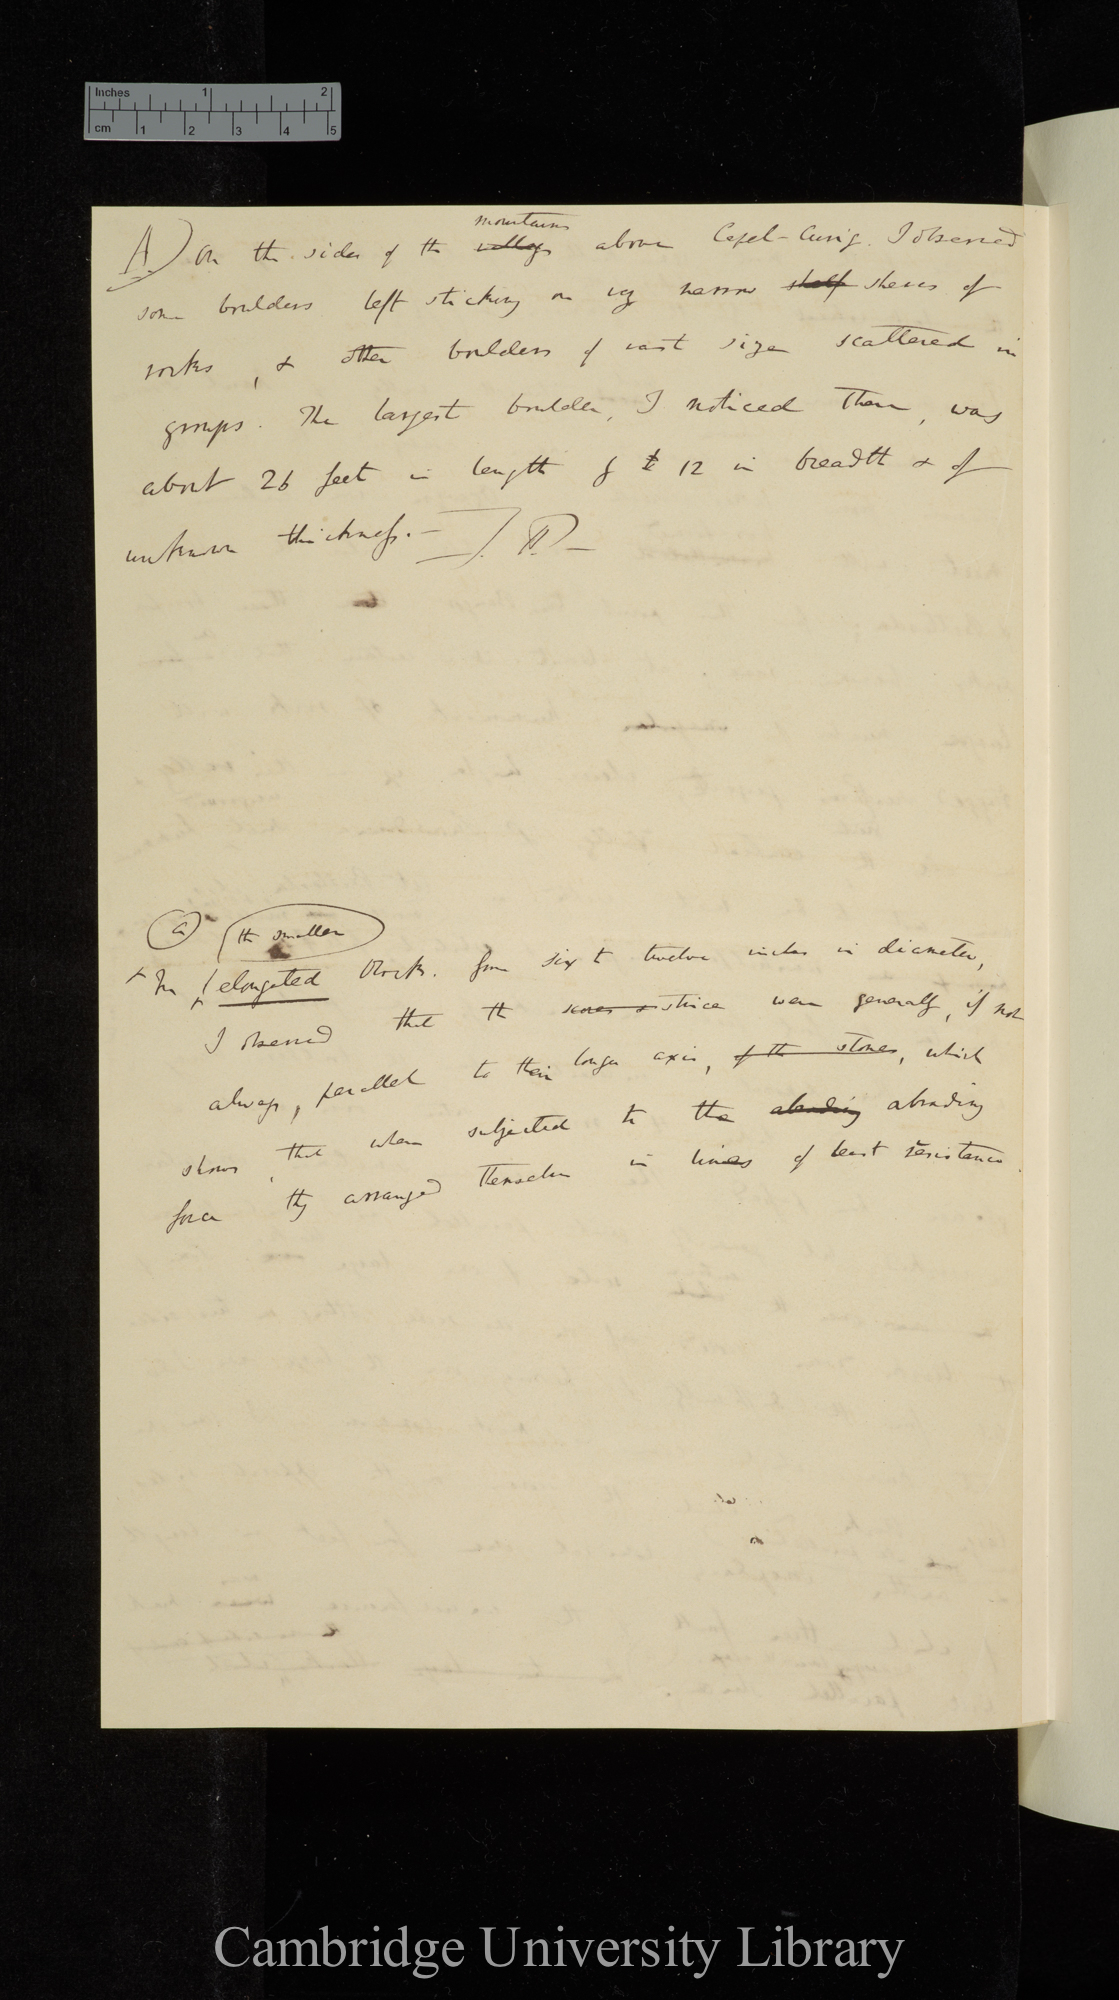 Inches 1 2
cm 1 2 3 4 5
mountains
A) On the sides of the valleys above Capel-Curig. I observed
some boulders left sticking on very narrow shelf shelves of
rocks, & other boulders of vast size scattered in
groups. The largest boulder, I noticed there, was
about 26 feet in length & 12 in breadth & of
unknown thickness.—].
(a) (the smaller)
In elongated blocks. from six to twelve inches in diameter,
I observed that the scores & striæ were generally, if not
always, parallel to their longer axis, of the stones, which
shows, that when subjected to the abrading abrading
force they arranged themselves in lines of least resistance.
Cambridge University Library